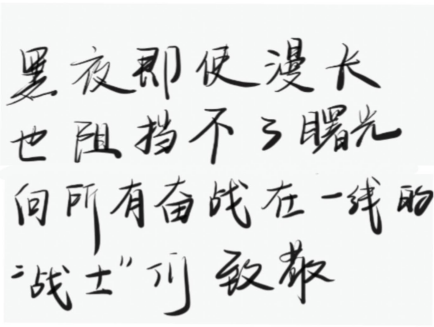 黑夜即使漫长
也阻挡不了曙光
向所有奋战在一线的
“战士”们致敬